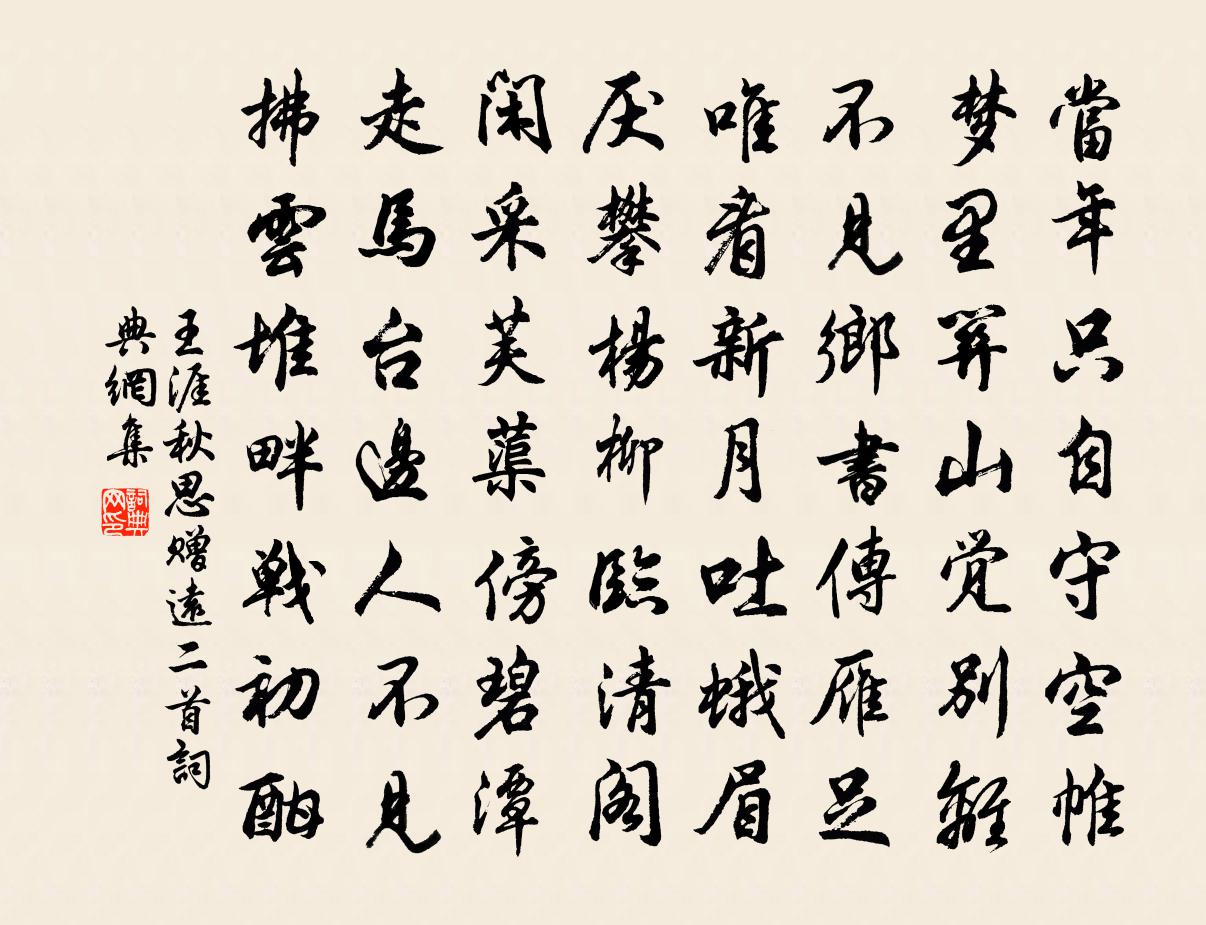 當年只自守空帷
梦里関山觉別離
不見鄉書傳雁足
唯看新月吐蛾眉
厌攀楊柳臨清阁
閑采芙蕖傍碧潭
走馬台邊人不見
拂雲堆畔戦初酣
王涯秋思赠遠二首詞
典網集
詞典
网印